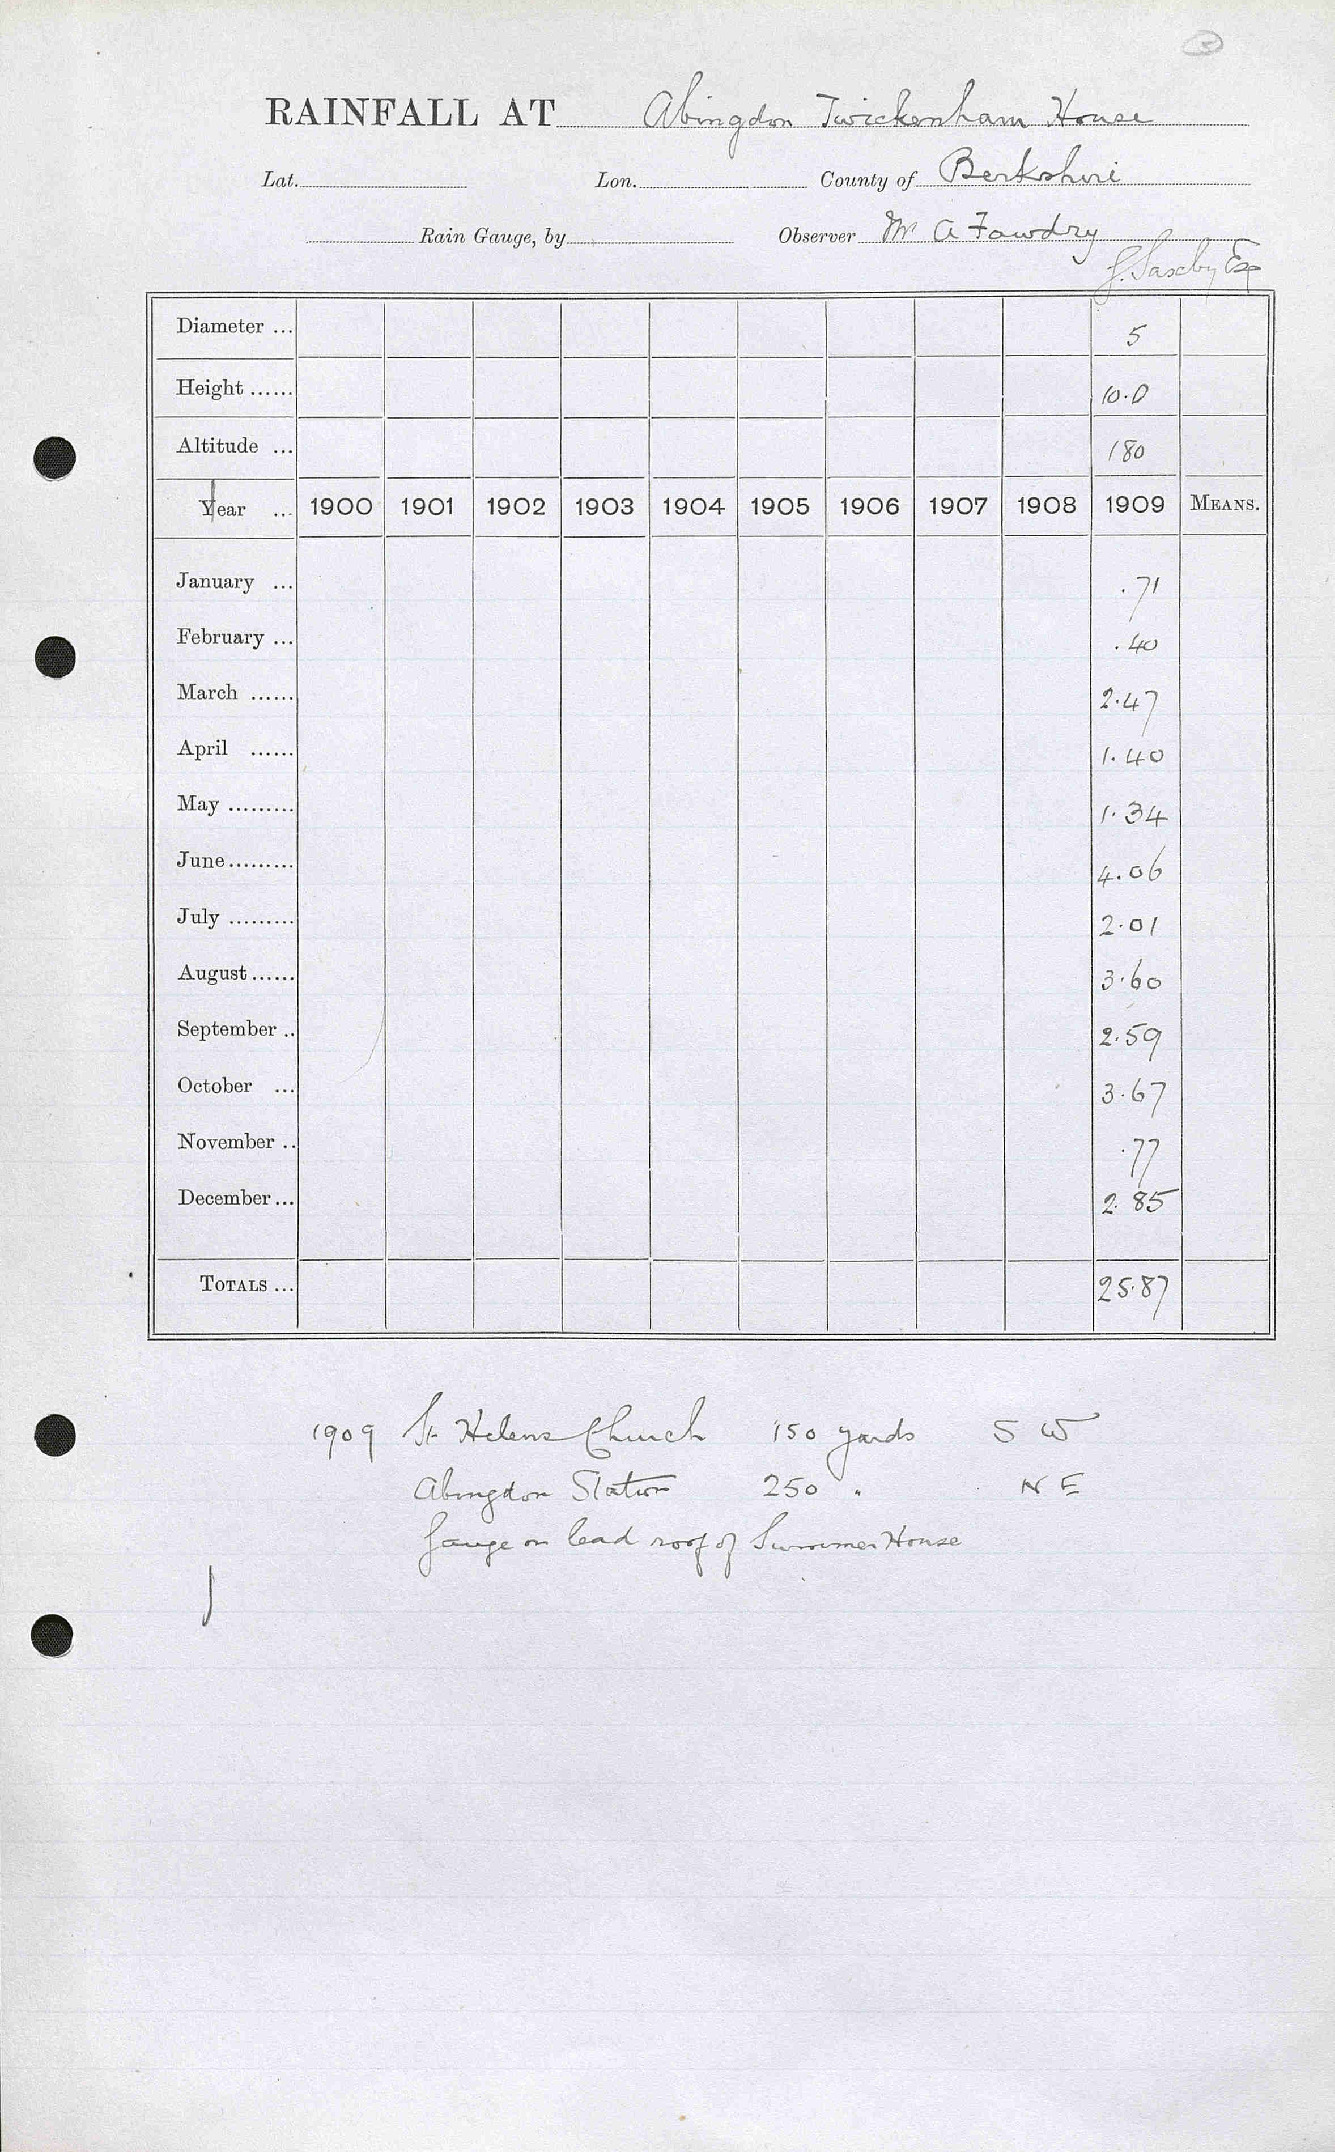 3
RAINFALL AT Abingdon Twickenham House
Lat. Lon. County of Berkshire
Rain Gauge, by Observer Mr A Fawdry
J. Saxby Esq
Diameter ... 5
Height ...... 10.0
Altitude ... 180
Year ... 1900 1901 1902 1903 1904 1905 1906 1907 1908 1909 MEANS.
January ... .71
February ... .40
March ...... 2.47
April ...... 1.40
May ......... 1.34
June ......... 4.06
July ......... 2.01
August ...... 3.60
September .. 2.59
October ... 3.67
November .. .77
December ... 2.85
TOTALS ... 25.87
1909 St Helens Church 150 yards S W
Abingdon Station 250 " N E
Gauge on lead roof of Summer House